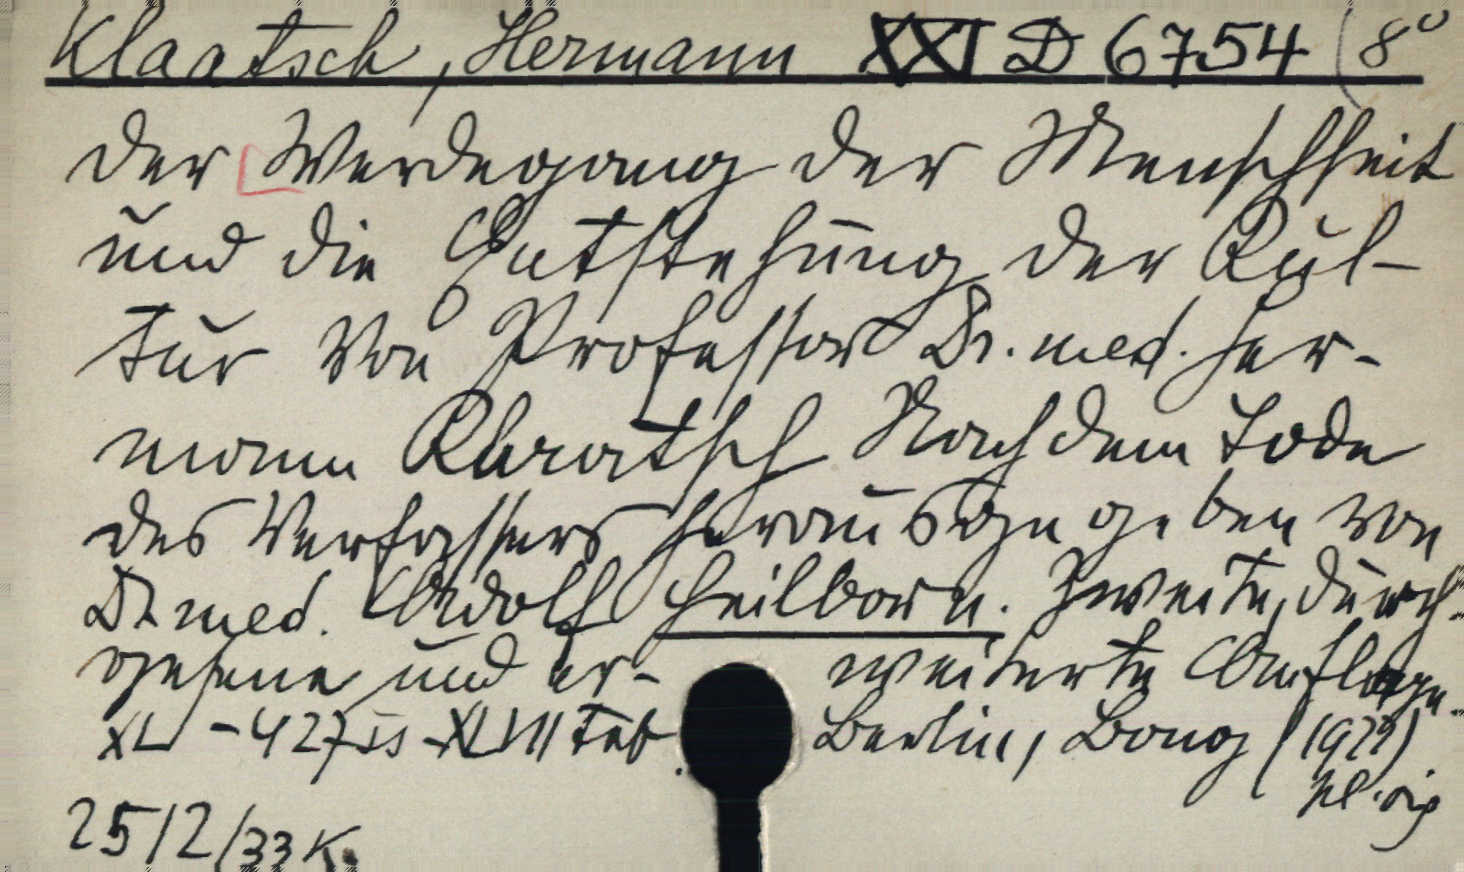 Klaatsch, Hermann XXI D 6754 (8°
Der Werdegang der Menschheit
und die Entstehung der Kul-
tur von Professor Dr. med. Her-
mann Klaatsch Nach dem Tode
des Verfassers herausgegeben von
Dr med. Adolf Heilborn. Zweite, durch-
gesehene und er- weiterte Auflage.
XL - 427 is - XLVII Taf. Berlin, Bong (1922)
25/2/33 K.